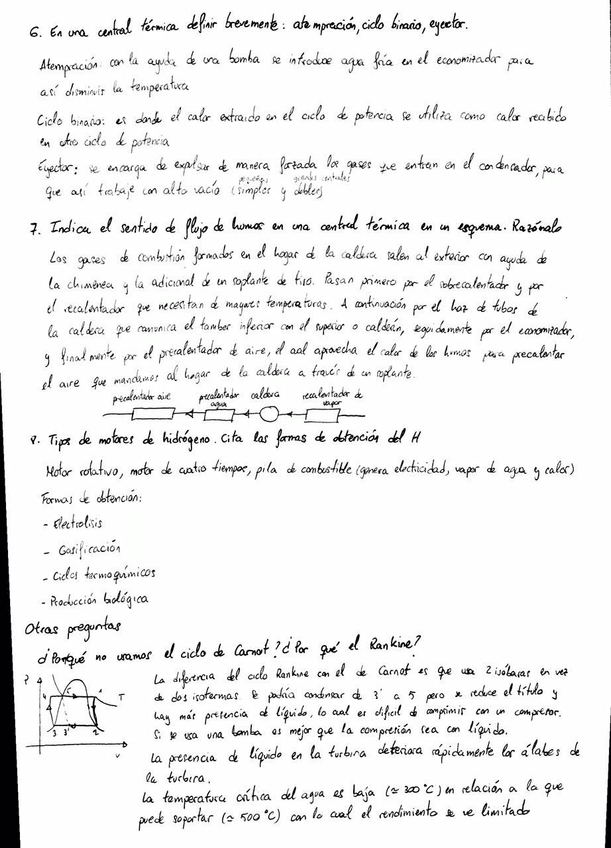 6. En una central térmica definir brevemente: atempración, ciclo binario, eyector.
Atempración: con la ayuda de una bomba se introduce agua fría en el economizador para
así disminuir la temperatura
Ciclo binario: es donde el calor extraido en el ciclo de potencia se utiliza como calor recibido
en otro ciclo de potencia
Eyector: se encarga de expulsar de manera forzada los gases que entran en el condensador, para
que así trabaje con alto vacío (simples y dobles)
pequeñas grandes centrales
7. Indica el sentido de flujo de humos en una central térmica en un esquema. Razónalo
Los gases de combustión formados en el hogar de la caldera salen al exterior con ayuda de
la chimenea y la adicional de un soplante de tiro. Pasan primero por el sobrecalentador y por
el recalentador que necesitan de mayores temperaturas. A continuación por el haz de tubos de
la caldera que comunica el tambor inferior con el superior o calderín, seguidamente por el economizador,
y finalmente por el precalentador de aire, el cual aprovecha el calor de los humos para precalentar
el aire que mandamos al hogar de la caldera a través de un soplante.
precalentador aire precalentador agua caldera recalentador de vapor
8. Tipos de motores de hidrógeno. Cita las formas de obtención del H
Motor rotativo, motor de cuatro tiempos, pila de combustible (genera electricidad, vapor de agua y calor)
Formas de obtención:
- Electrolisis
- Gasificación
- Ciclos termoquímicos
- Producción biológica
Otras preguntas
¿Porqué no usamos el ciclo de Carnot? ¿Por qué el Rankine?
P 4 1 T 3 3' 2 v
La diferencia del ciclo Rankine con el de Carnot es que usa 2 isóbaras en vez
de dos isotermas. Se podría condensar de 3' a 5 pero se reduce el título y
hay más presencia de líquido, lo cual es dificil de comprimir con un compresor.
Si se usa una bomba es mejor que la compresión sea con líquido.
La presencia de líquido en la turbina deteriora rápidamente los álabes de
la turbina.
La temperatura crítica del agua es baja (≃ 300 °C) en relación a la que
puede soportar (≃ 500 °C) con lo cual el rendimiento se ve limitado